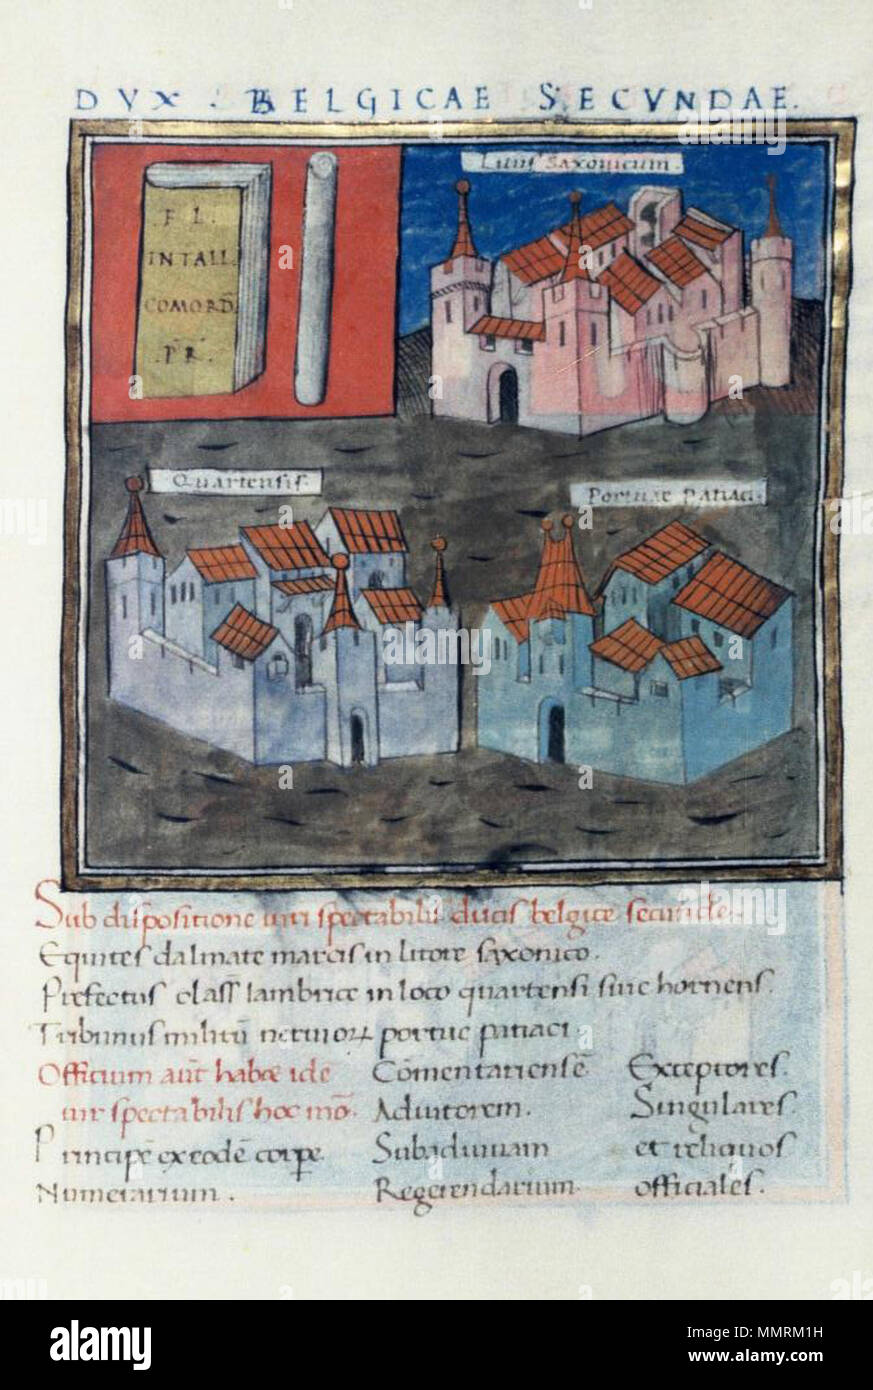 DVX . BELGICAE SECVNDAE.
Litus Saxonicum.
.F L.
INTALL.
COMORD
.PR.
Quartensis.
Portuae Patiaci.
Sub dispositione uiri spectabilis ducis belgice secunde.
Equites dalmate marcis in litore saxonico.
Prefectus class sambrice in loco quartensi siue hornensi.
Tribunus militũ neruioꝝ portue patiaci
Officium aut̃ habẽ idẽ
uir spectabilis hoc mõ.
Principẽ ex eodẽ corpe.
Numerarium.
Cõmentariensẽ
Adiutorem.
Subadiuuam
Regerendarium.
Exceptores.
Singulares.
et reliquos
officiales.
alamy
Image ID: MMRM1H
www.alamy.com